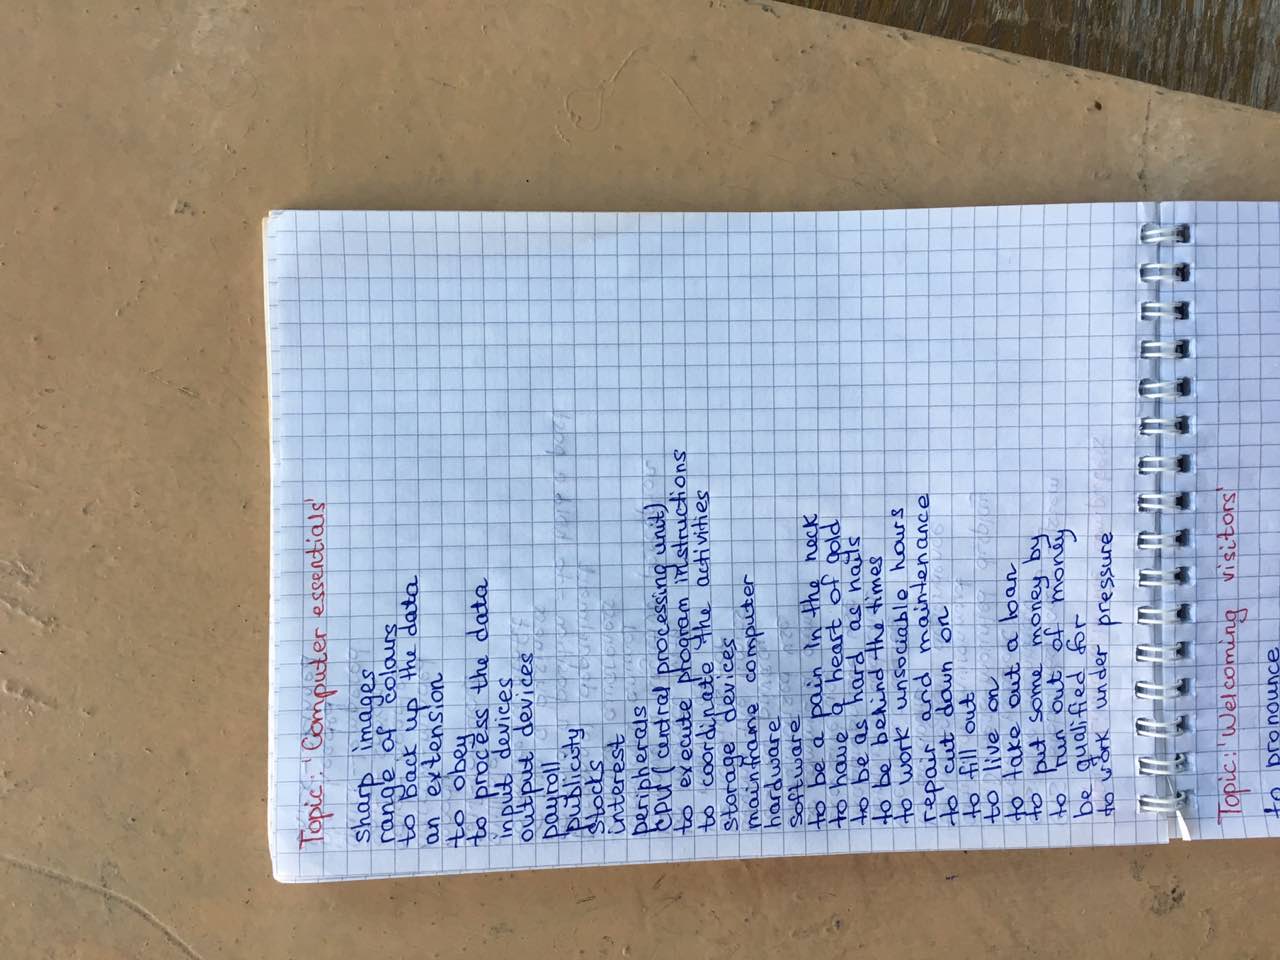 Topic: 'Computer essentials'
sharp images
range of colours
to back up the data
an extension
to obey
to process the data
input devices
output devices
payroll
publicity
stocks
interest
peripherals
CPU (central processing unit)
to execute program instructions
to coordinate the activities
storage devices
mainframe computer
hardware
software
to be a pain in the neck
to have a heart of gold
to be as hard as nails
to be behind the times
to work unsociable hours
repair and maintenance
to cut down on
to fill out
to live on
to take out a loan
to put some money by
to run out of money
be qualified for
to work under pressure
Topic: 'Welcoming visitors'
to pronounce